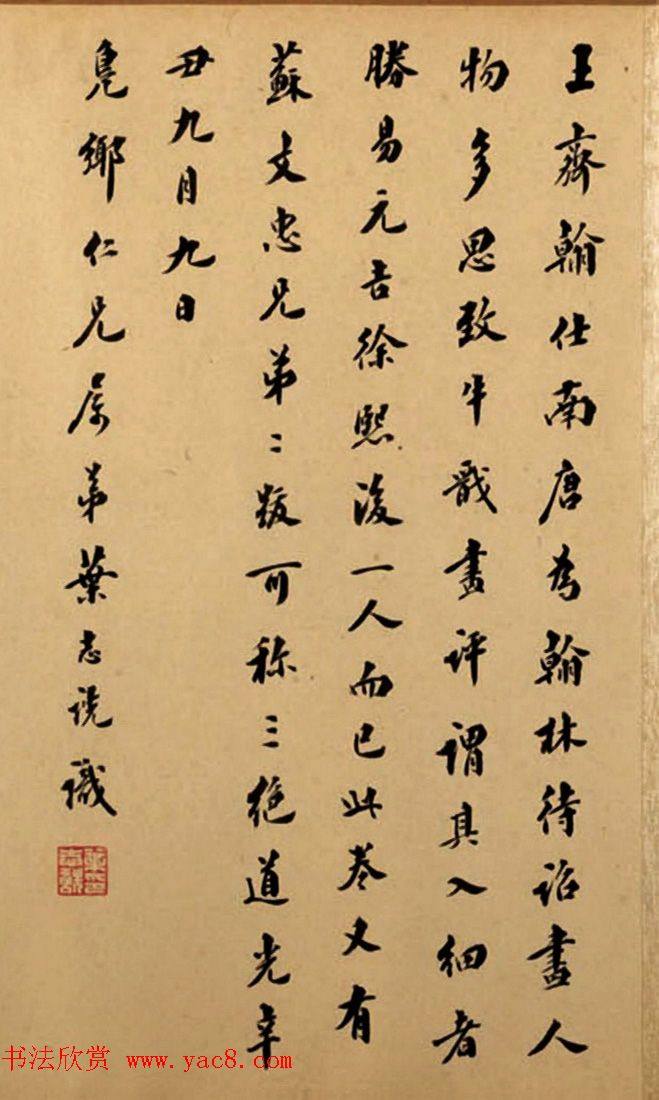 王齊翰仕南唐為翰林待詔畫人
物多思致牛戩畫評謂其入細者
勝易元吉徐熙後一人而已此卷又有
蘇文忠兄弟二跋可称三絕道光辛
丑九月九日
鳧鄉仁兄属弟葉志詵識
书法欣赏 www.yac8.com